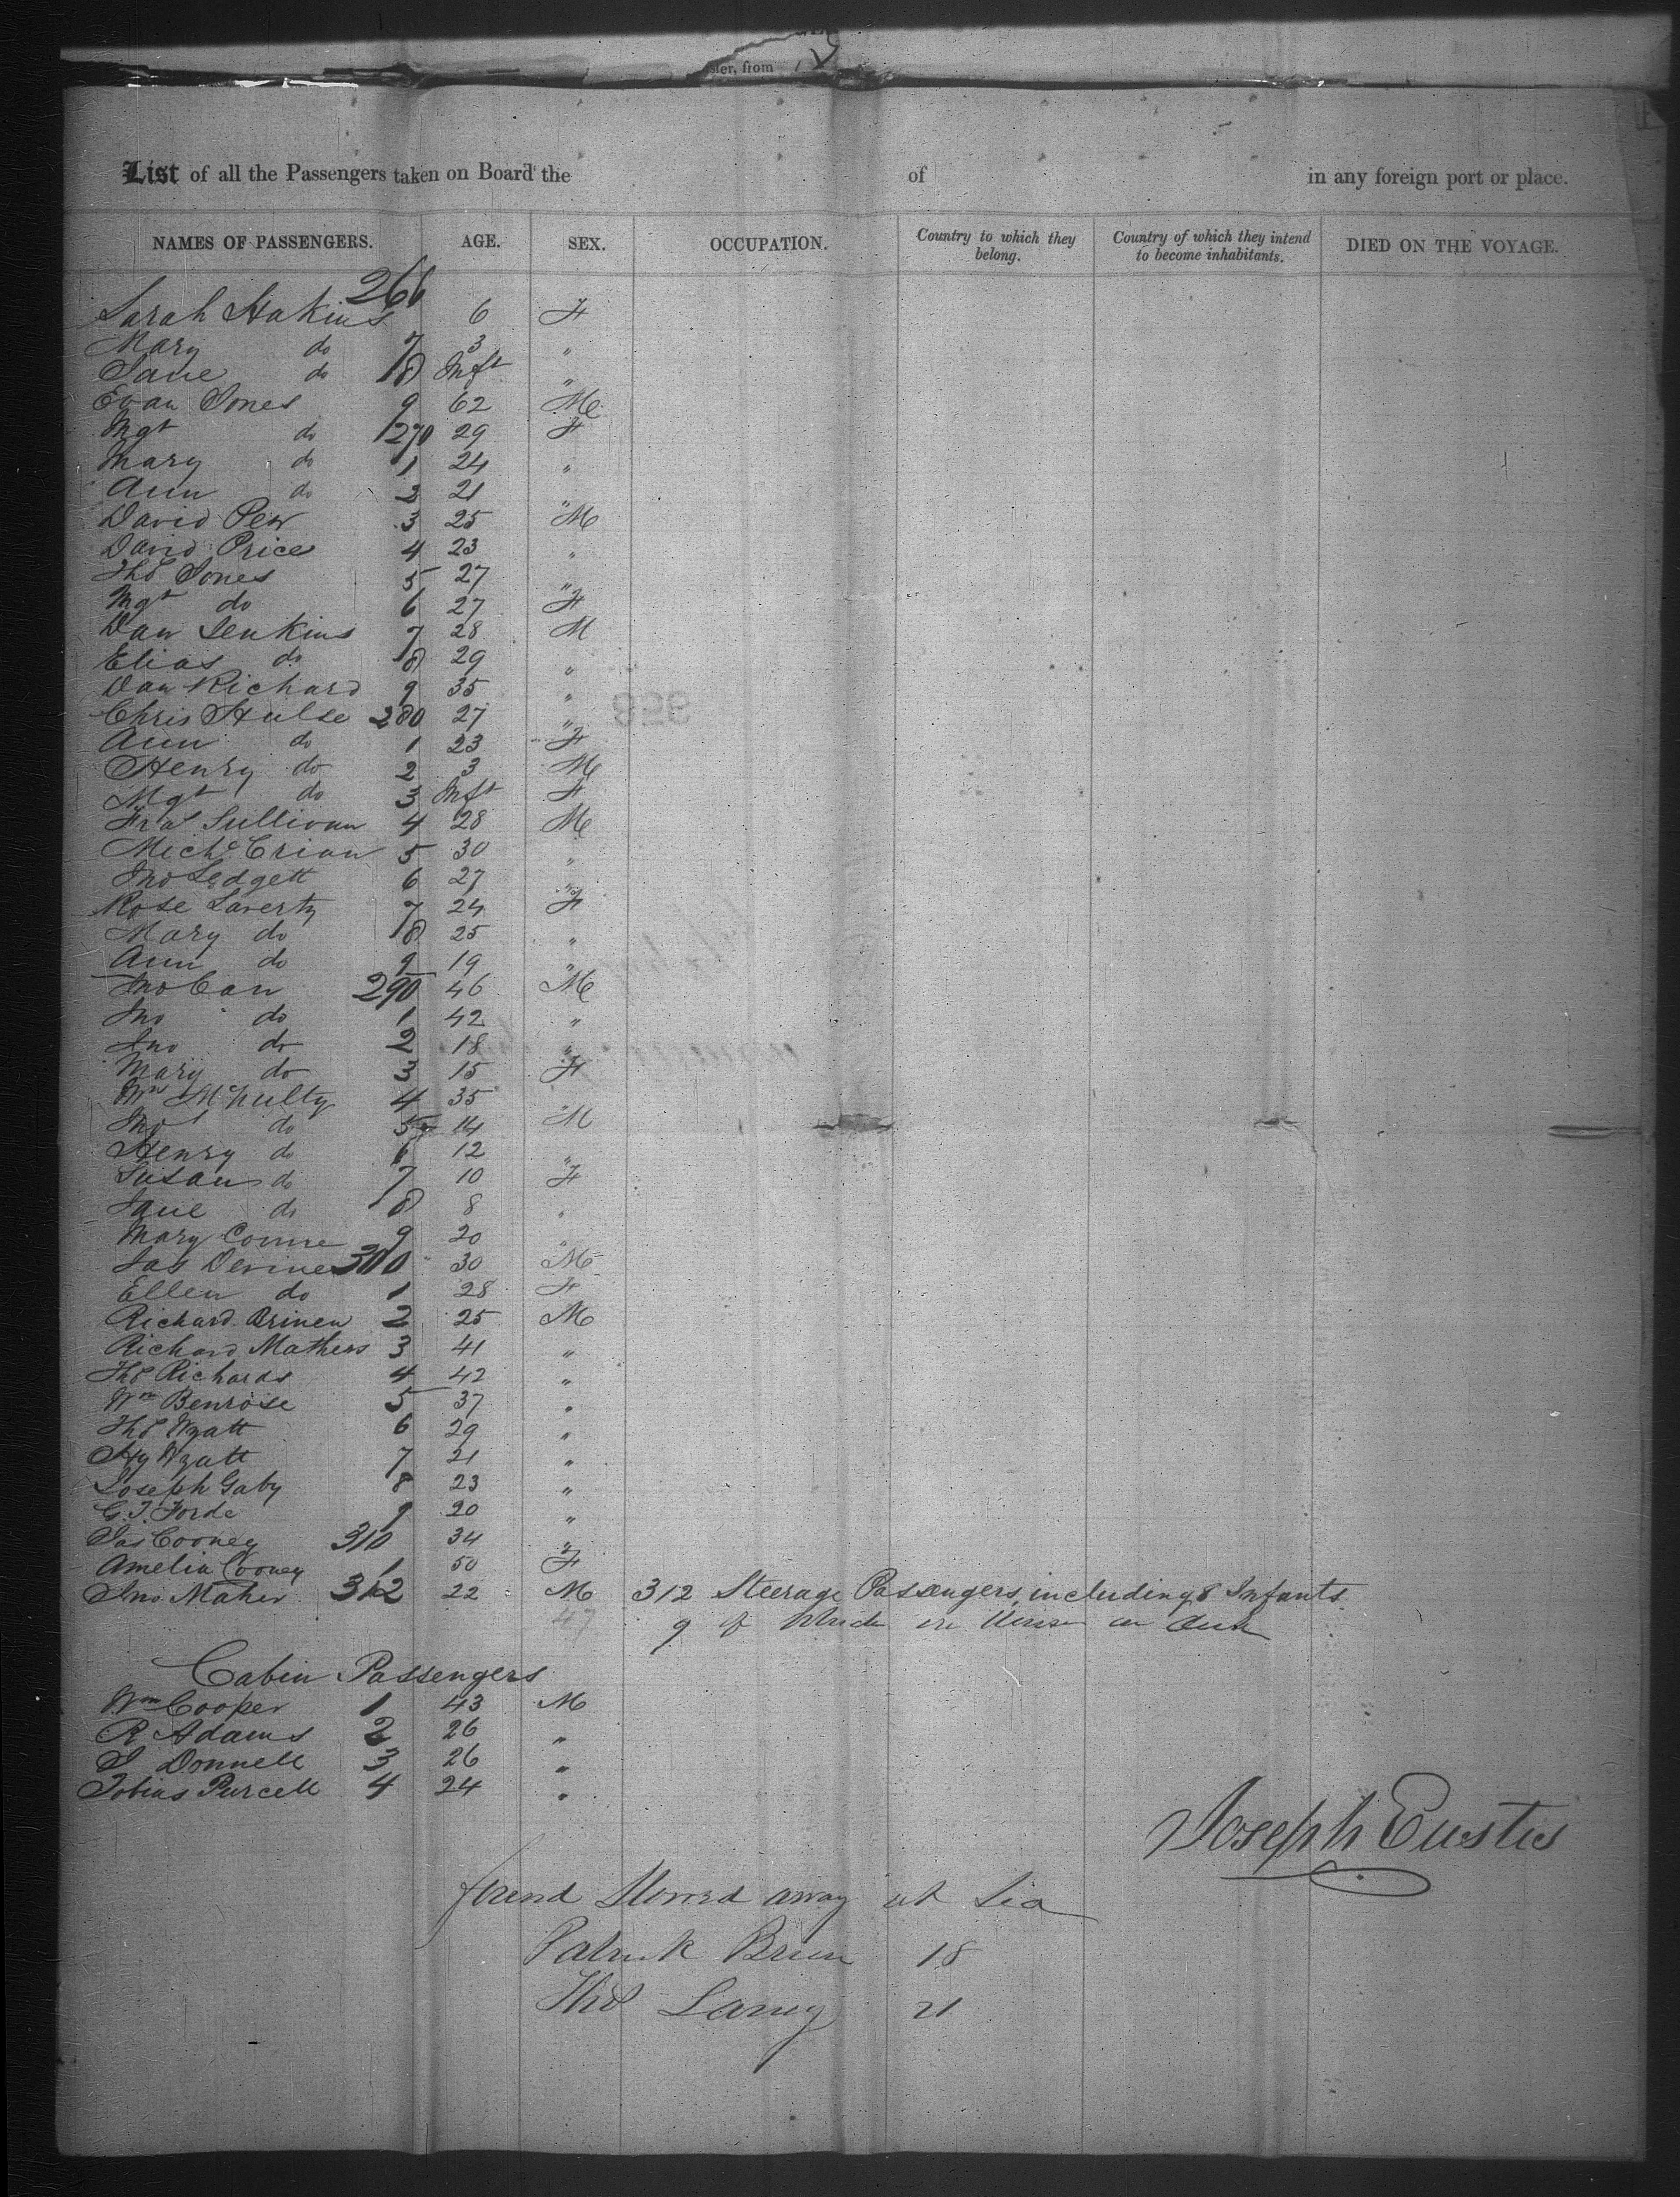 sler, from
List of all the Passengers taken on Board the of in any foreign port or place.
NAMES OF PASSENGERS. AGE. SEX. OCCUPATION. Country to which they belong. Country of which they intend to become inhabitants. DIED ON THE VOYAGE.
Sarah Hakins 266 6 F
Mary do 7 3 "
Jane do 8 Inft "
Evan Jones 9 62 M
Mgt do 270 29 F
Mary do 1 24 "
Ann do 2 21 "
David Pew 3 25 M
David Price 4 23 "
Thos Jones 5 27 "
Mgt do 6 27 F
Dan Jenkins 7 28 M
Elias do 8 29 "
Dan Richard 9 35 "
Chris Hulse 280 27 "
Ann do 1 23 F
Henry do 2 3 M
Mgt do 3 Inft F
Fras Sullivan 4 28 M
Michl Crian 5 30 "
Jno Ledgett 6 27 "
Rose Laverty 7 24 F
Mary do 8 25 "
Ann do 9 19 "
Jno Can 290 46 M
Jno do 1 42 "
Jno do 2 18 "
Mary do 3 15 F
Wm McNulty 4 35
Jno do 5 14 M
Henry do 6 12 "
Susan do 7 10 F
Jane do 8 8 "
Mary 9 20 "
Jas Devine 300 30 M
Ellen do 1 28 F
Richard 2 25 M
Richard Mathers 3 41 "
Thos Richards 4 42 "
Wm Benrose 5 37 "
Thos Wyatt 6 29 "
Hy Wyatt 7 21 "
Joseph Gaby 8 23 "
G.T. Forde 9 20 "
Jas Cooney 310 34 "
Amelia Cooney 1 50 F
Jno Maher 312 22 M 312 Steerage Passengers, including 8 Infants
47 9 of which in House on Deck
Cabin Passengers
Wm Cooper 1 43 M
R Adams 2 26 "
J Donnell 3 26 "
Tobias Purcell 4 24 "
Joseph Eustis
found Stowed away at Sea
Patrick 18
Thos 21